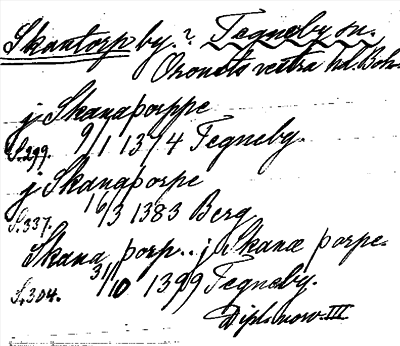 Skantorp by.? Tegneby sn.
Orousts vestra hd. Boh.
j Skanaþorppe
S.299. 9/1 1374 Tegneby.
j Skanaþorpe
S.337. 16/3 1383 Berg
Skana þorp.. j Skanæ þorpe.
S.304. 31/10 1399 Tegneby.
Dipl. norv. III